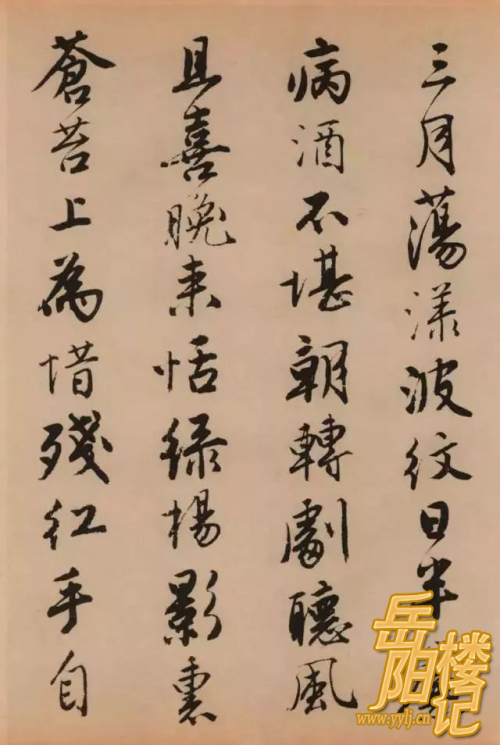 三月蕩漾波紋日半
病酒不堪朝轉劇聽風
且喜晚來恬綠楊影裏
蒼苔上為惜殘紅手自
岳阳楼记
www.yylj.cn